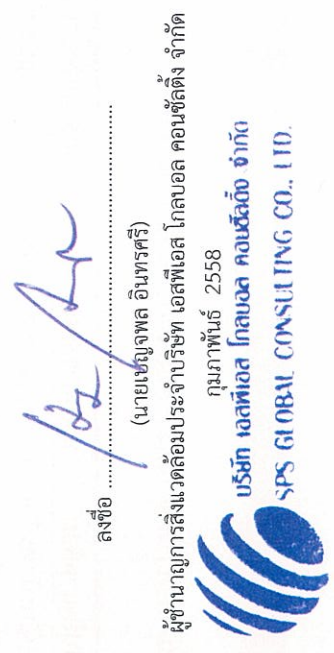 ลงชื่อ ..........................................................
(นายเบญจพล อินทรศรี)
ผู้ชำนาญการสิ่งแวดล้อมประจำบริษัท เอสพีเอส โกลบอล คอนซัลติ้ง จำกัด
กุมภาพันธ์ 2558
บริษัท เอสพีเอส โกลบอล คอนซัลติ้ง จำกัด
SPS GLOBAL CONSULTING CO., LTD.